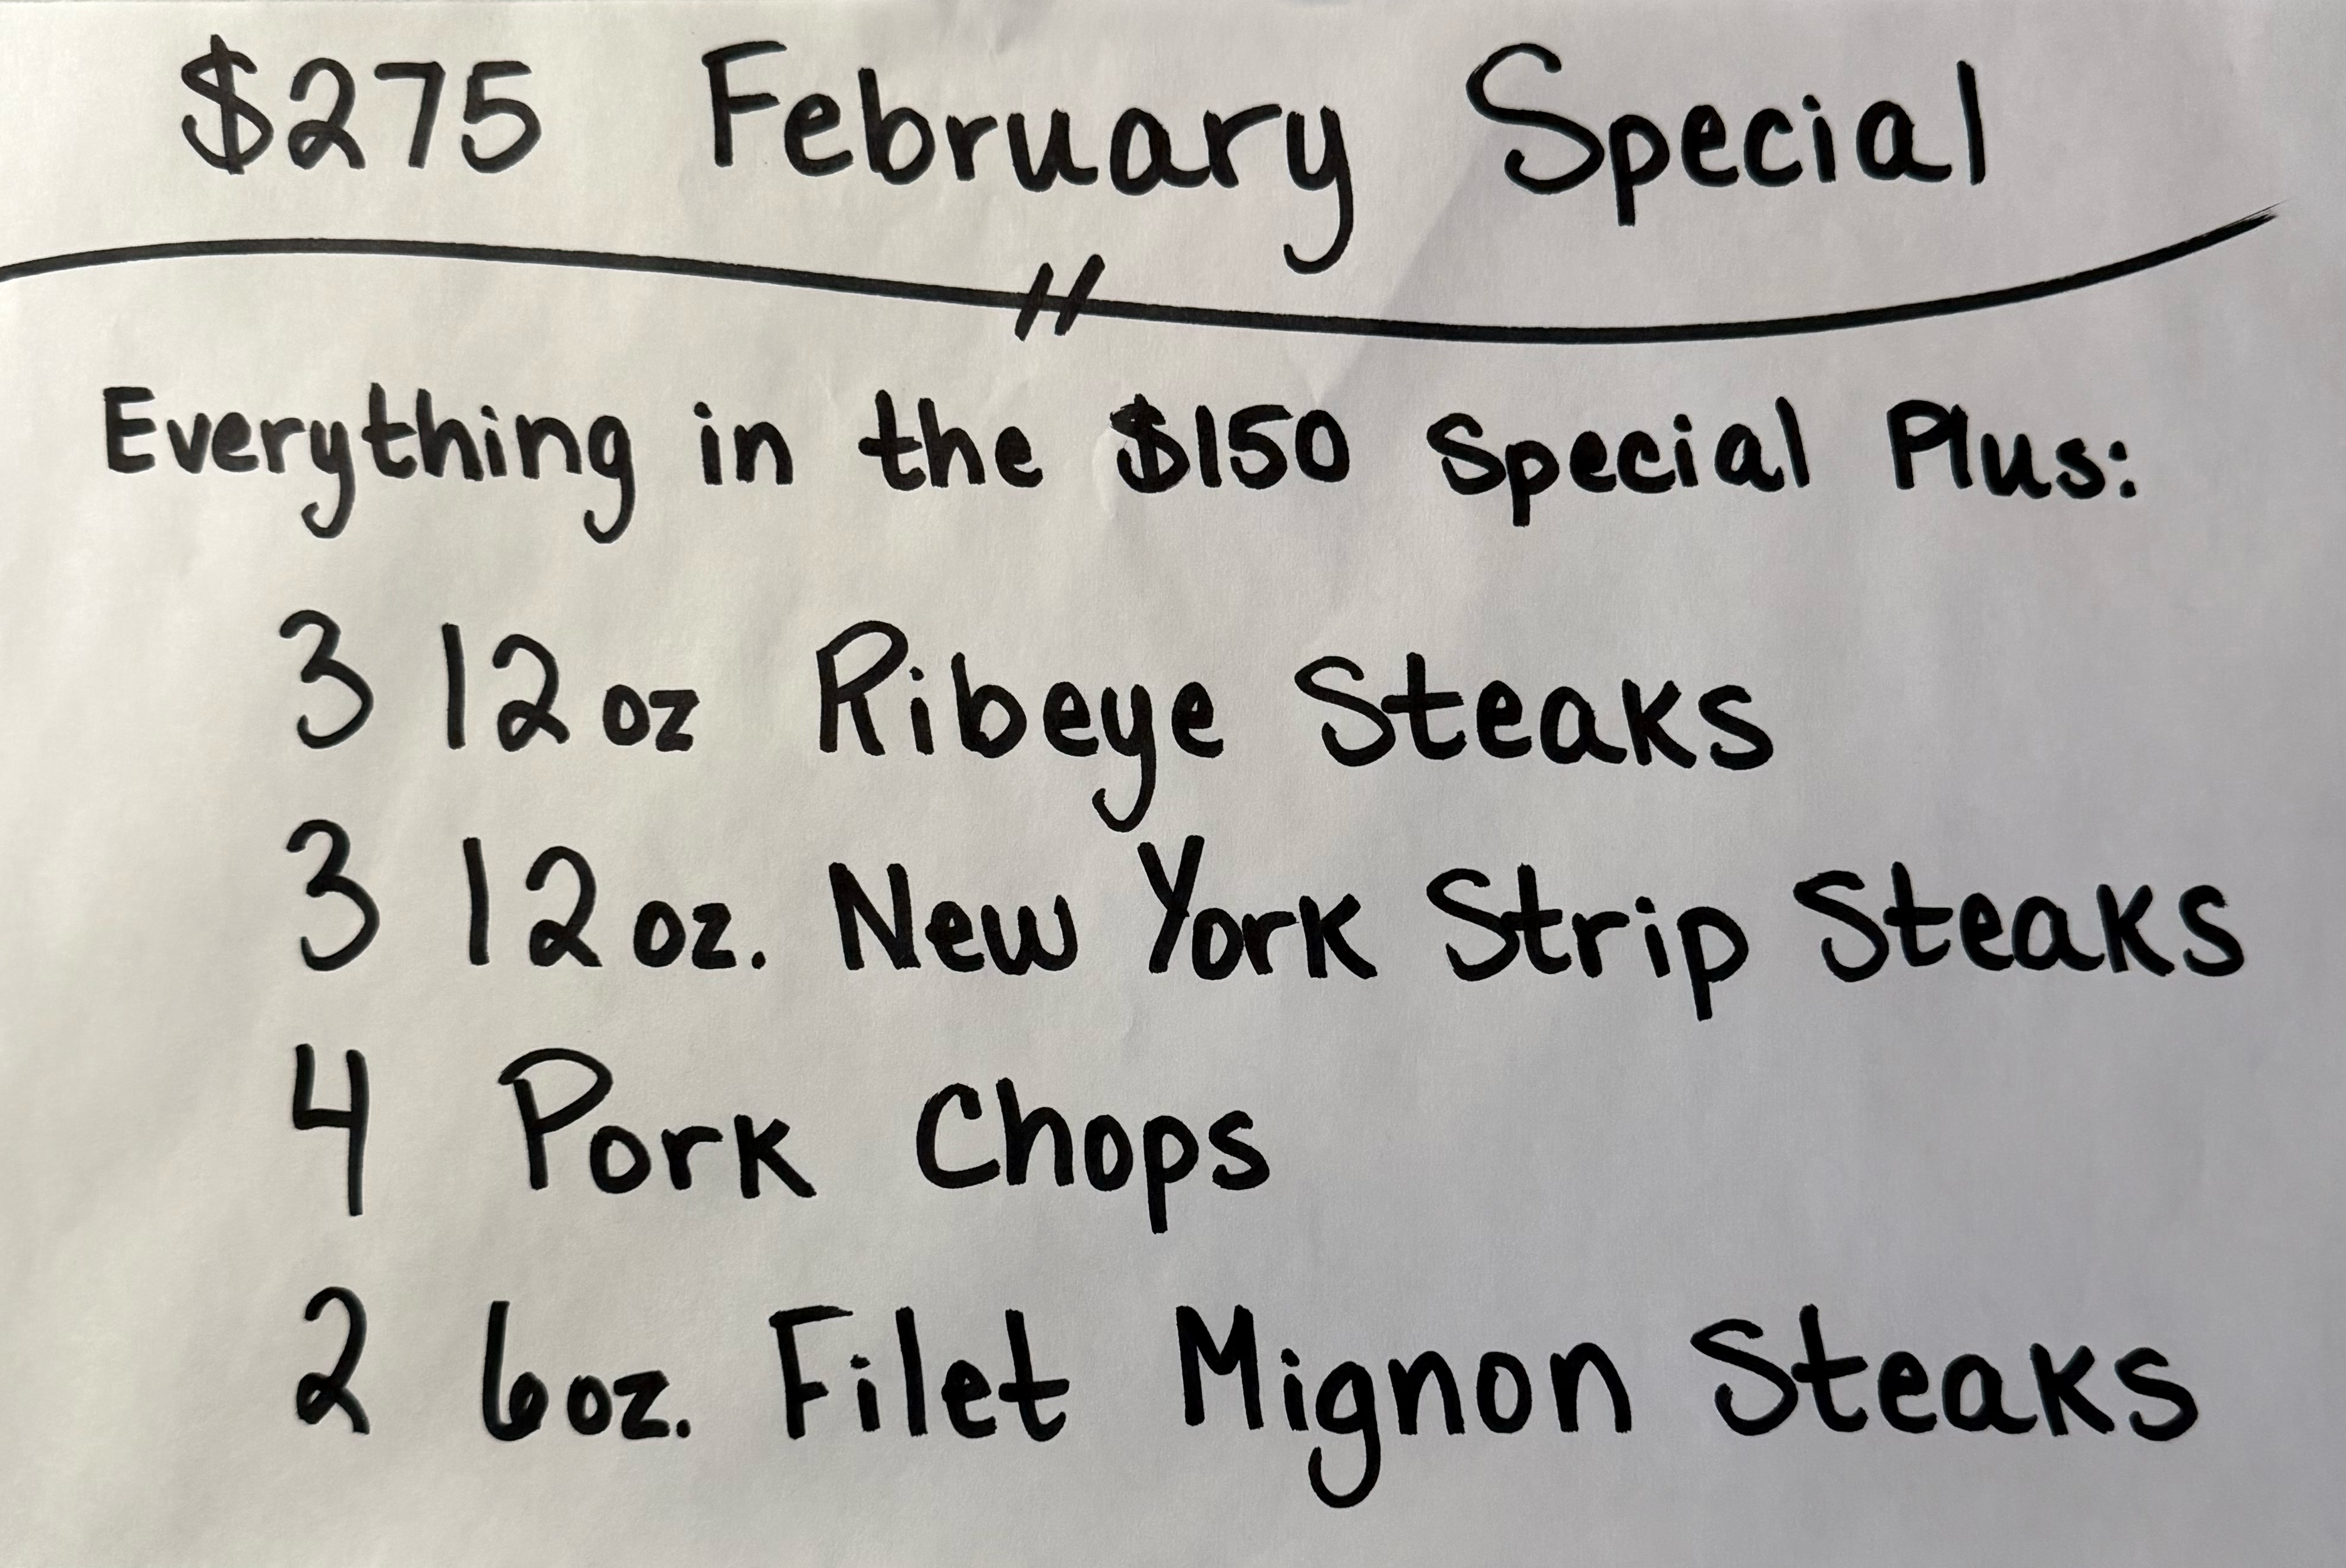 $275 February Special
Everything in the $150 Special Plus:
3 12oz Ribeye Steaks
3 12oz. New York Strip Steaks
4 Pork Chops
2 6oz. Filet Mignon Steaks